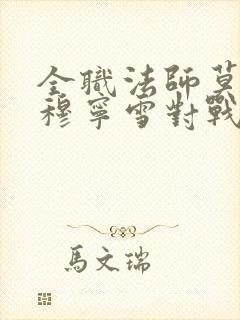 全職法師莫
穆寧雪對戰
馬文瑞